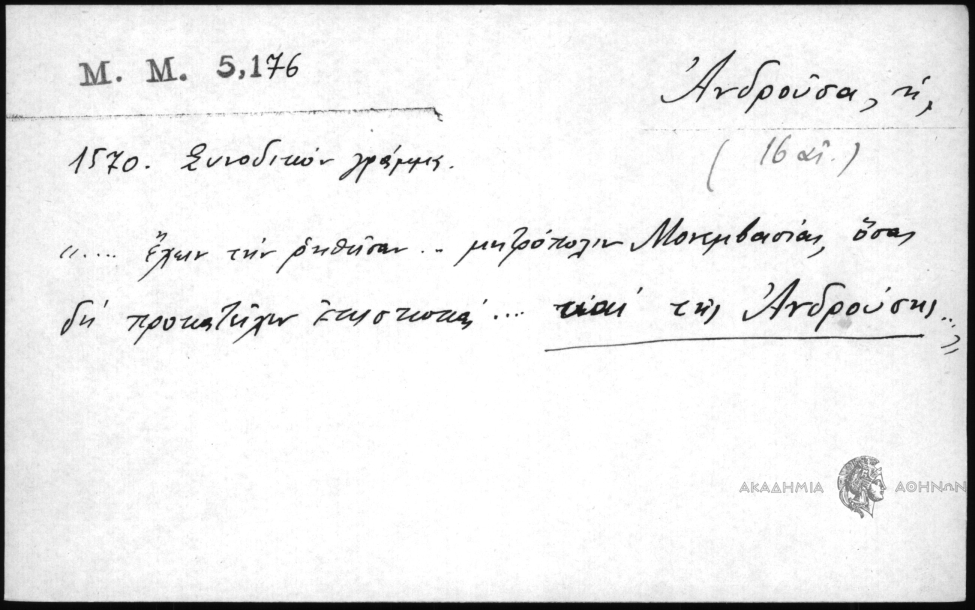 M. M. 5,176
Ἀνδροῦσα, ἡ,
(16 αἰ.)
1570. Συνοδικόν γράμμα.
«.... ἔχειν τήν ῥηθεῖσαν .. μητρόπολιν Μονεμβασίας, ὅσας
δή προκατεῖχεν ... καί τῆς Ἀνδρούσης...»
ΑΚΑΔΗΜΙΑ ΑΘΗΝΩΝ